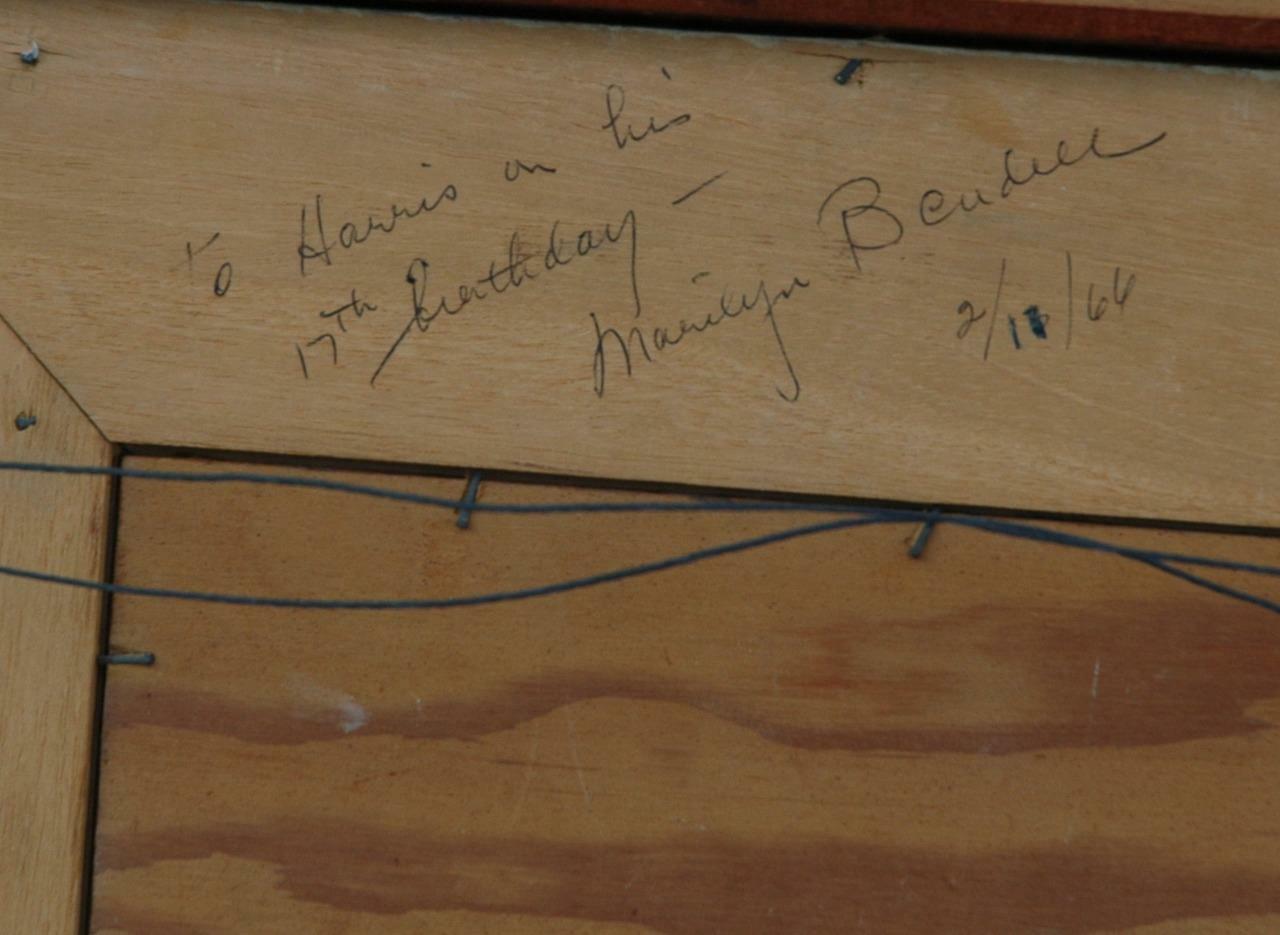 To Harris on his
17th birthday —
Marilyn Bendell
2/18/64